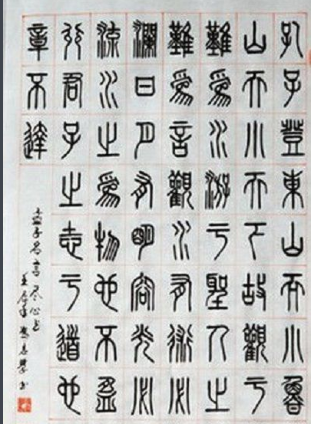 孔子登東山而小魯
山而小天下故觀于
難為水游于聖人之
難為言觀水有術必
瀾日月有明容光必
流水之為物也不盈
行君子之志于道也
章不達
孟子名言尽心上